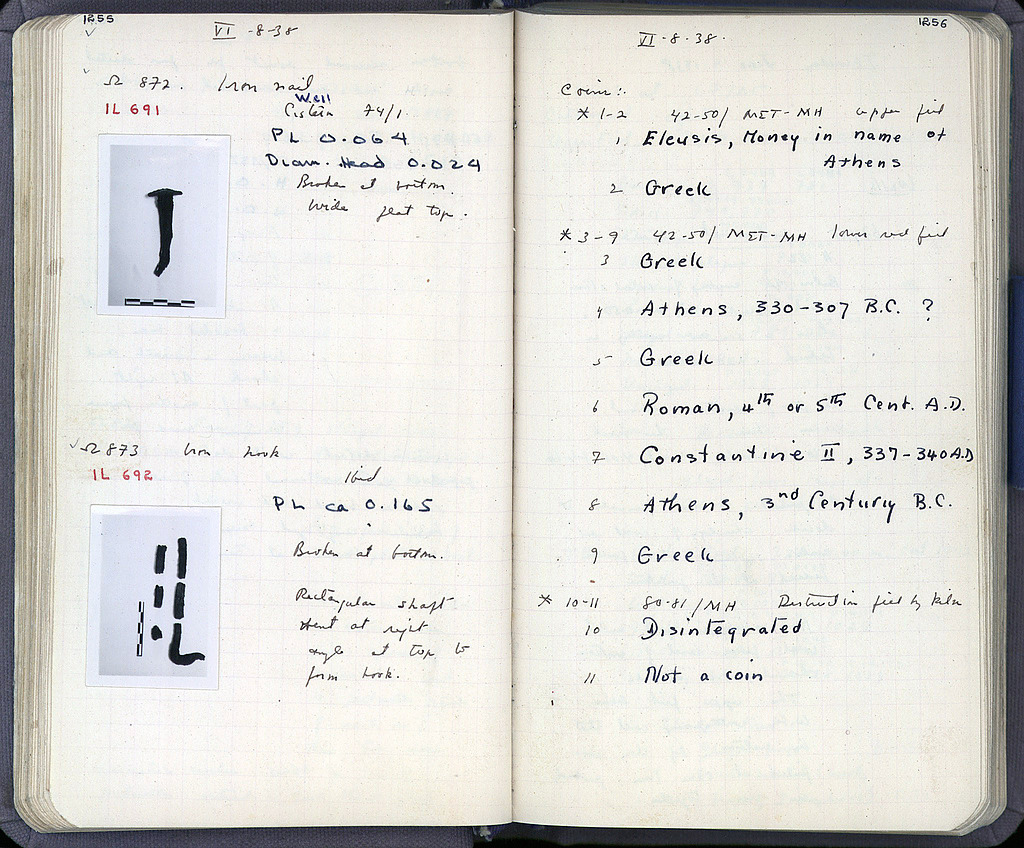 1255
VI -8-38
Ω 872. Iron nail
IL 691
Well
Cistern 74/1
PL 0.064
Diam. Head 0.024
Broken at bottom.
Wide flat top.
Ω 873 Iron hook
IL 692
Ibid
PL ca 0.165
Broken at bottom.
Rectangular shaft
bent at right
angle at top to
form hook.
1256
VI -8-38.
Coins:
* 1-2 42-50/ MET-MH upper fill
1 Eleusis, Money in name of
Athens
2 Greek
* 3-9 42-50/ MET-MH lower red fill
3 Greek
4 Athens, 330-307 B.C. ?
5 Greek
6 Roman, 4th or 5th Cent. A.D.
7 Constantine II, 337-340 A.D
8 Athens, 3nd Century B.C.
9 Greek
* 10-11 80-81/MH Destruction fill by kiln
10 Disintegrated
11 Not a coin